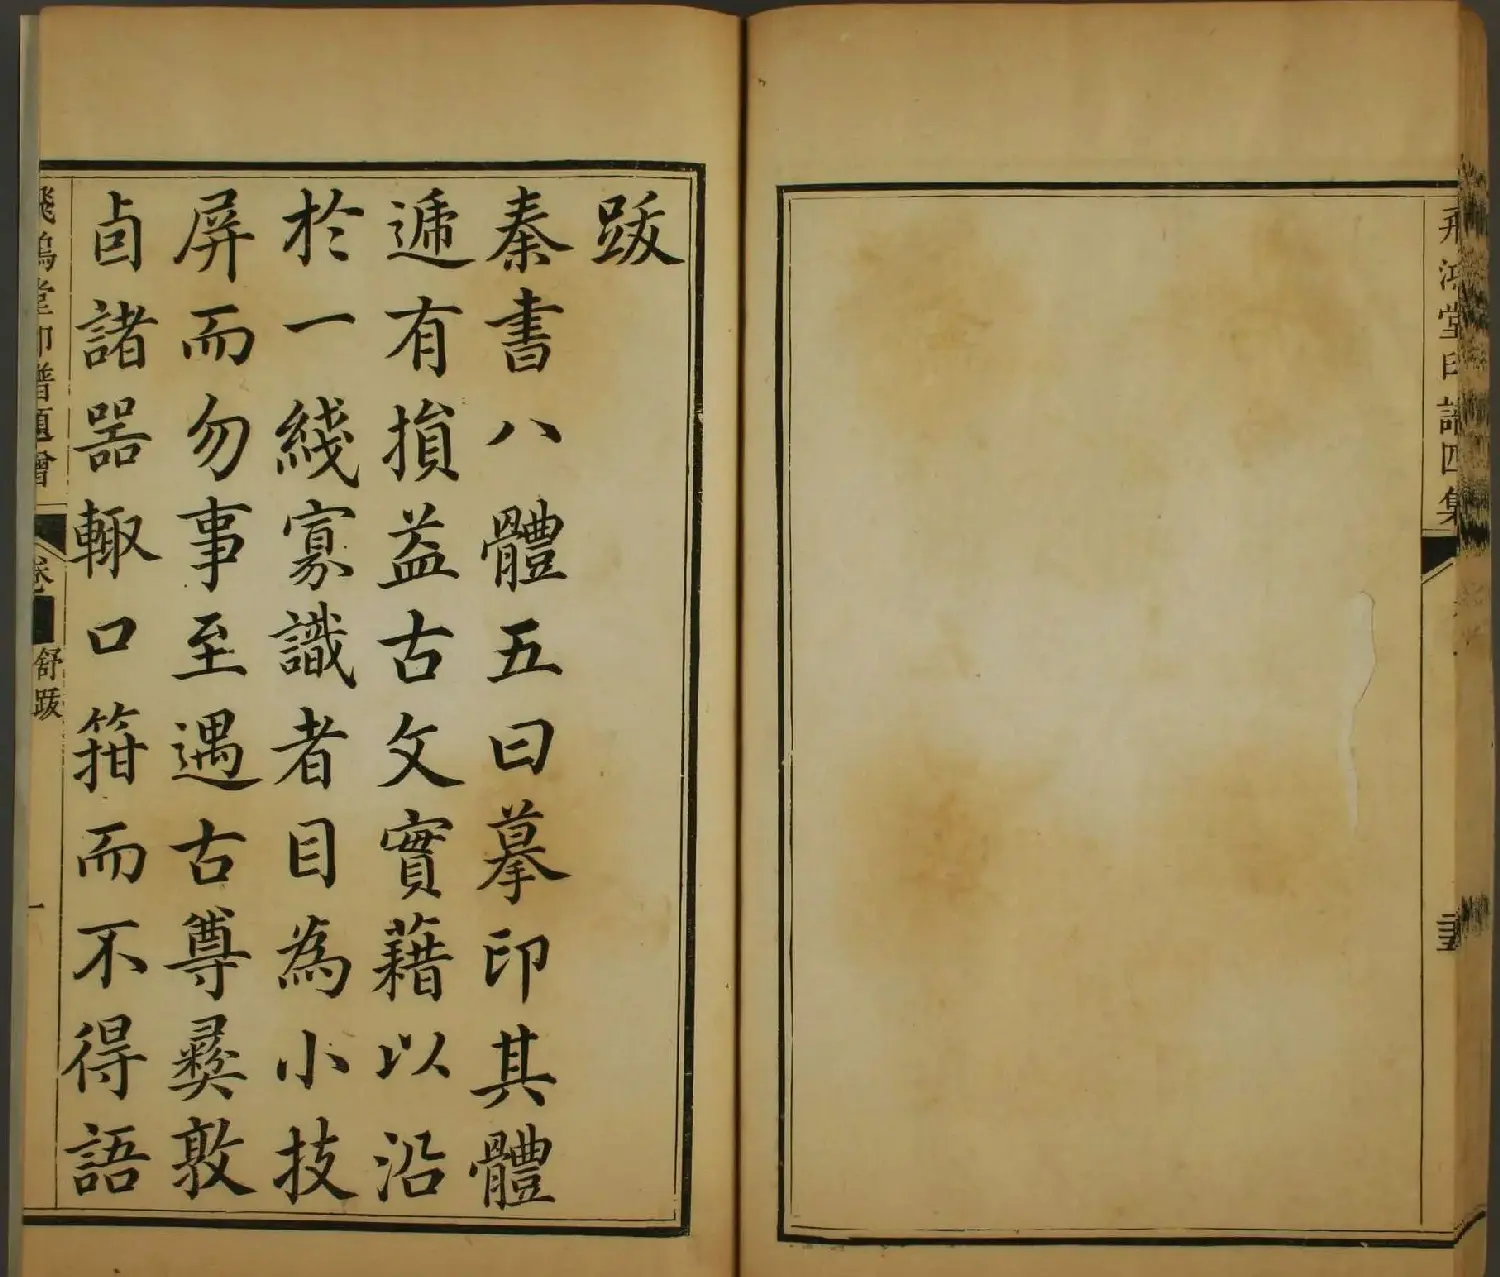 飛鴻堂印譜四集
跋
秦書八體五曰摹印其體
遞有損益古文實藉以沿
於一綫寡識者目為小技
屏而勿事至遇古尊彝敦
卣諸器輙口箝而不得語
飛鴻堂印譜題贈
卷
舒跋
一